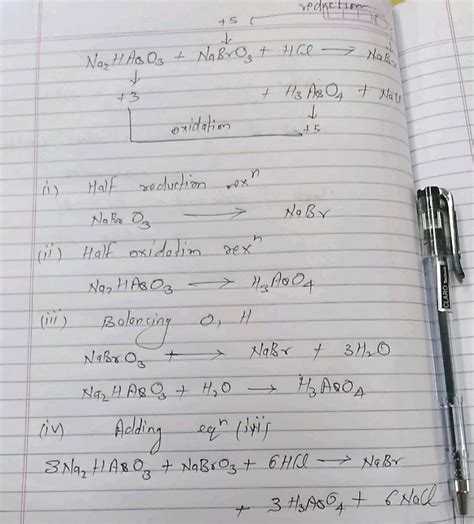 reduction
+5
Na2HAsO3 + NaBrO3 + HCl → NaBr
+ H3AsO4 + NaCl
+3
oxidation +5
i) Half reduction rexⁿ
NaBrO3 → NaBr
(ii) Half oxidation rexⁿ
Na2HAsO3 → H3AsO4
(iii) Balancing O, H
NaBrO3 → NaBr + 3H2O
Na2HAsO3 + H2O → H3AsO4
(iv) Adding eqⁿ (iii)
3Na2HAsO3 + NaBrO3 + 6HCl → NaBr
+ 3H3AsO4 + 6NaCl
CLARO